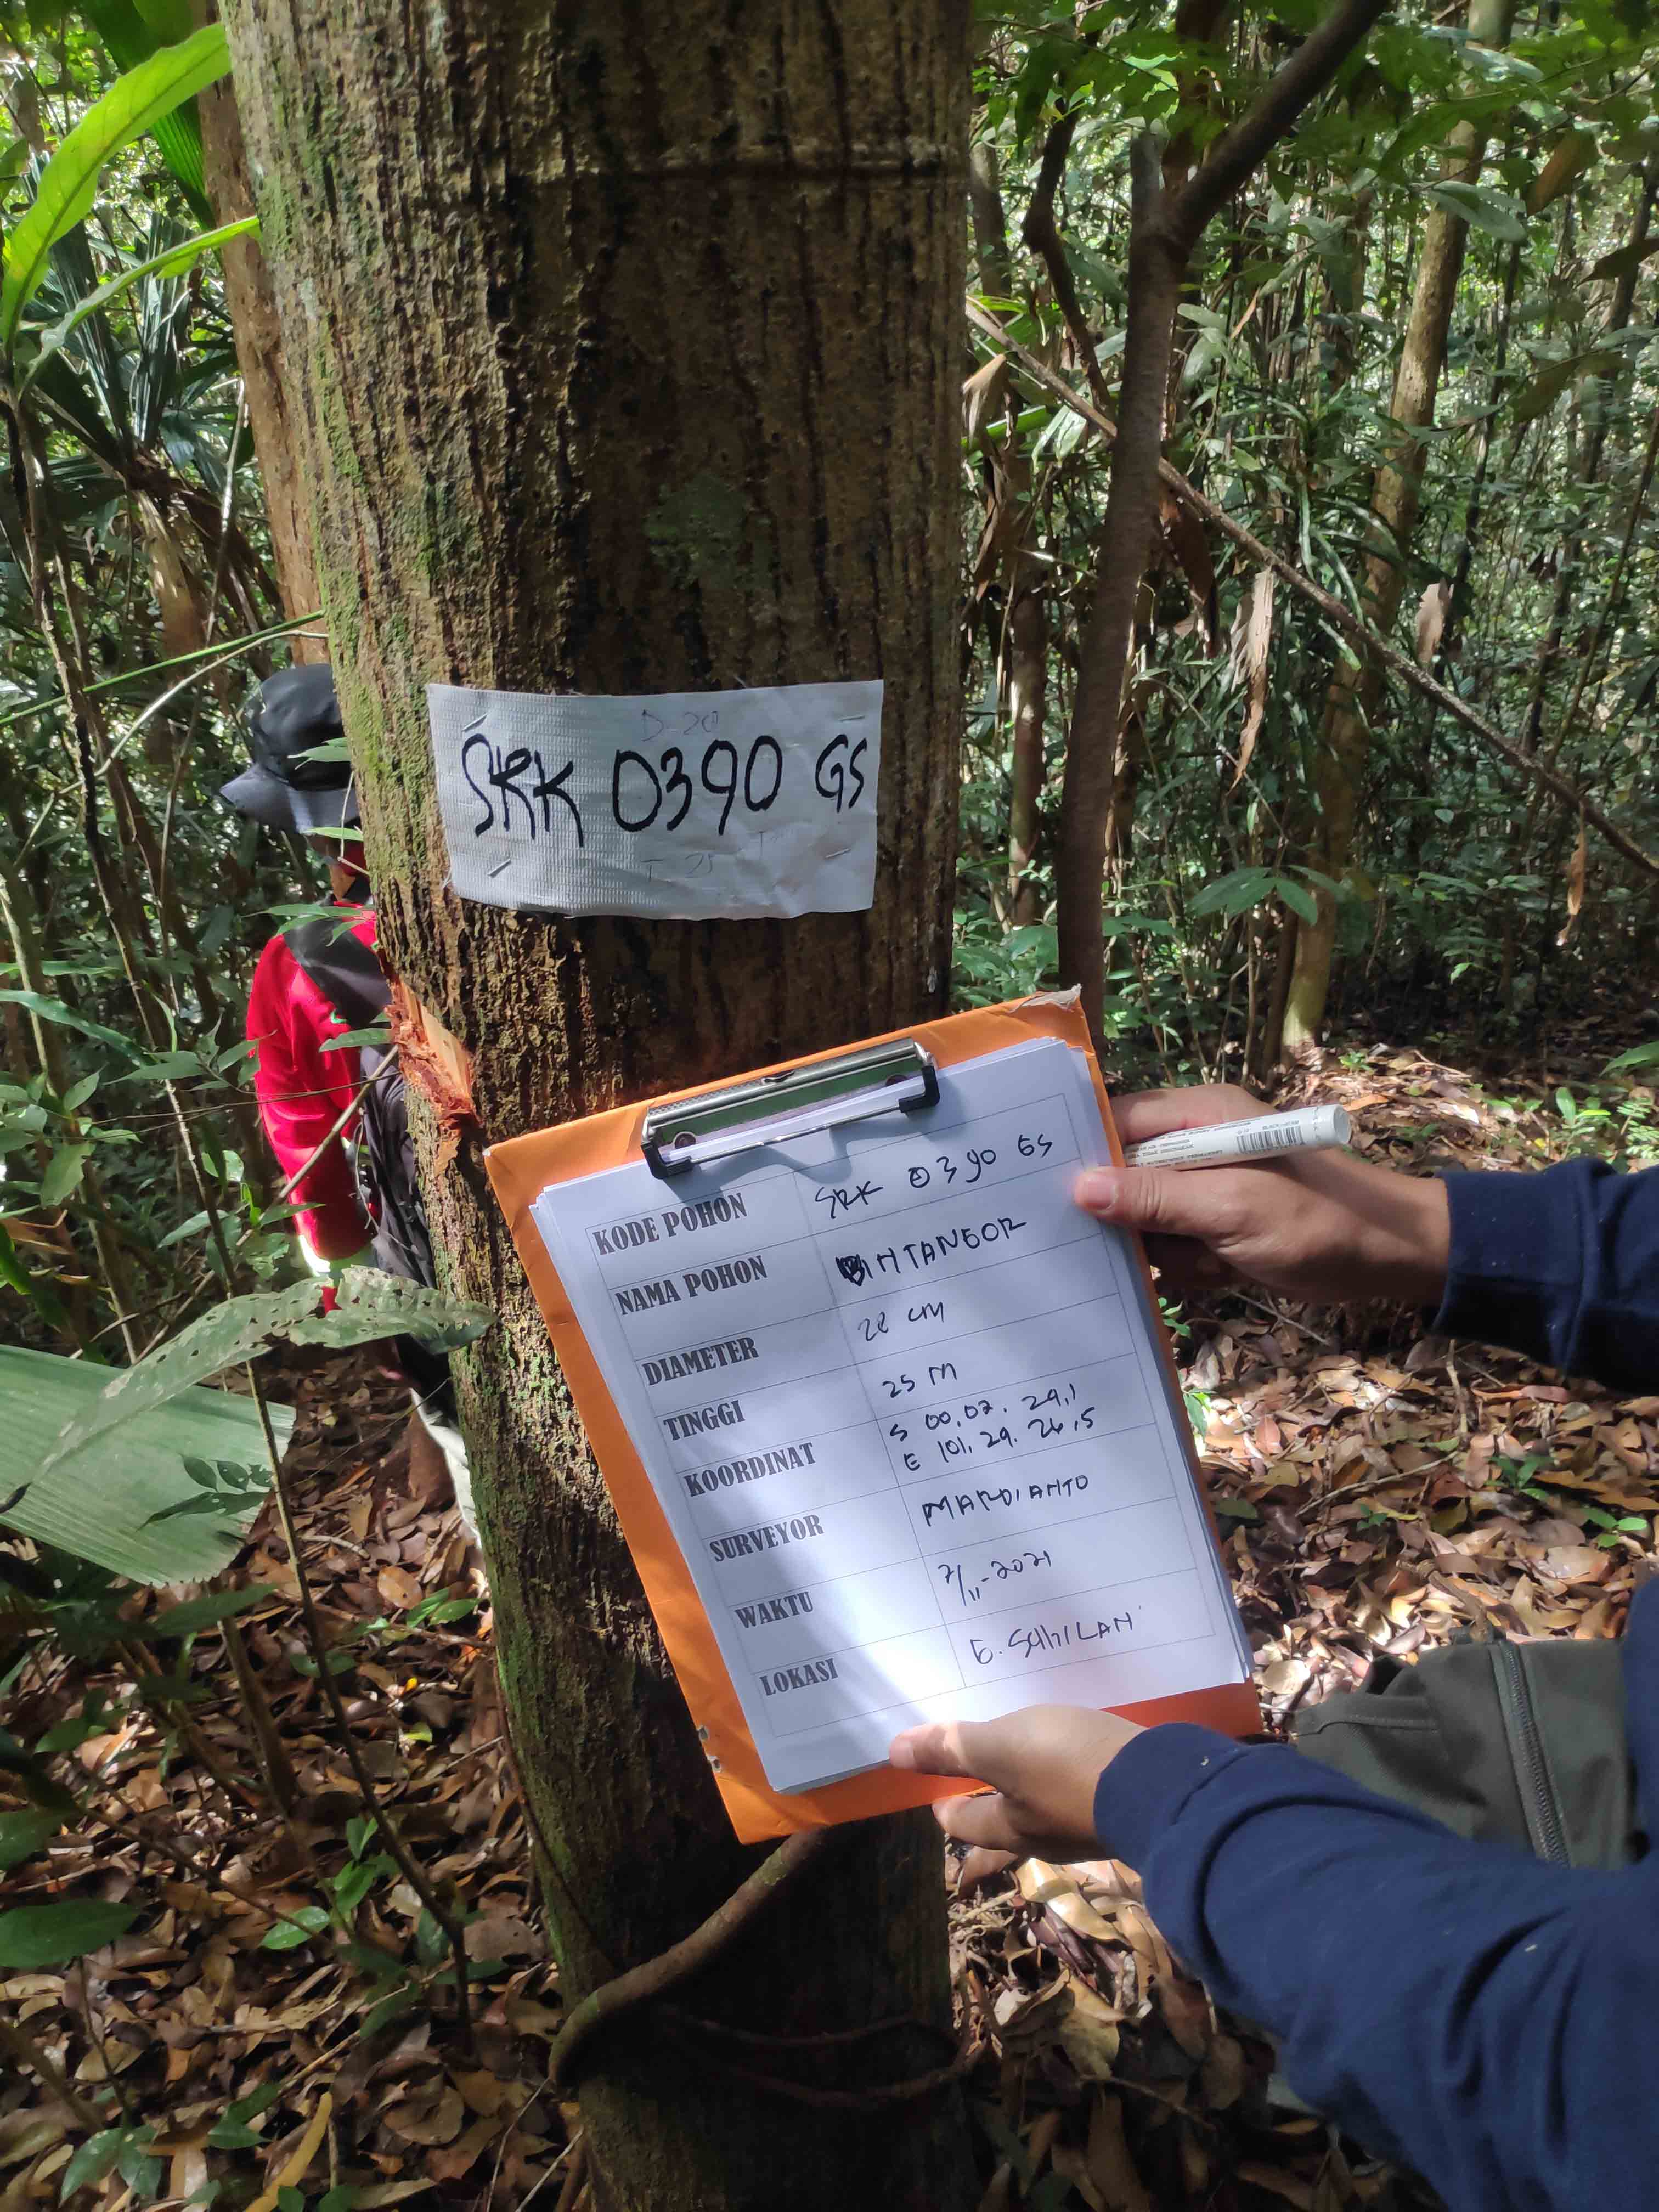 SRK 0390 GS
KODE POHON SRK 0390 GS
NAMA POHON BINTANGOR
DIAMETER 28 CM
TINGGI 25 M
KOORDINAT S 00.02. 29,1
E 101. 29. 26,5
SURVEYOR MARDIANTO
WAKTU 7/11-2021
LOKASI G. SAHILAN